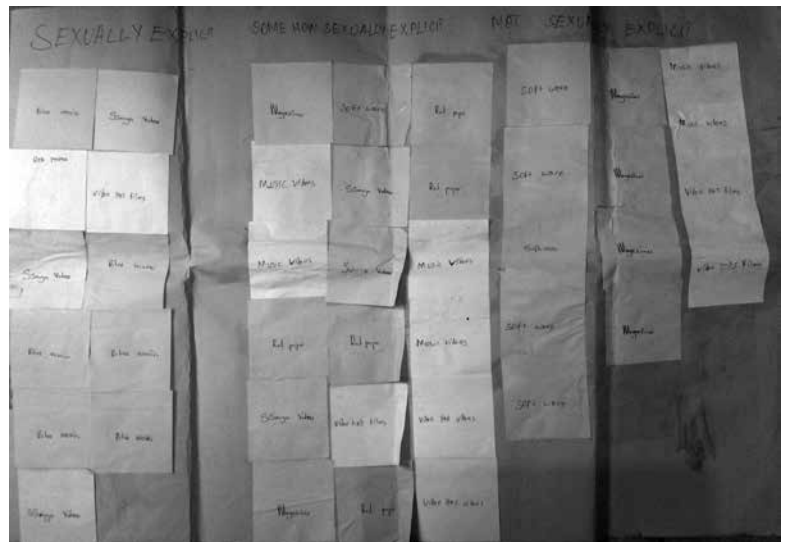 SEXUALLY EXPLICIT
SOME HOW SEXUALLY EXPLICIT
NOT SEXUALLY EXPLICIT
Blue movie
Ssenga Video
Video hot films
Ssenga Video
Blue movie
Blue movie
Blue movie
Blue movie
Blue movie
Ssenga Video
Magazine
Soft ware
Red pepe
Music Videos
Ssenga Video
Red pepe
Music Videos
Ssenga Video
Music Videos
Red pepe
Red pepe
Music videos
Ssenga Video
Video hot films
Video hot videos
Magazine
Red pepe
Video hot videos
Soft ware
Soft ware
Soft ware
Soft ware
Magazine
Magazine
Magazines
Magazine
Music Videos
Music videos
Video hot films
Video hot films